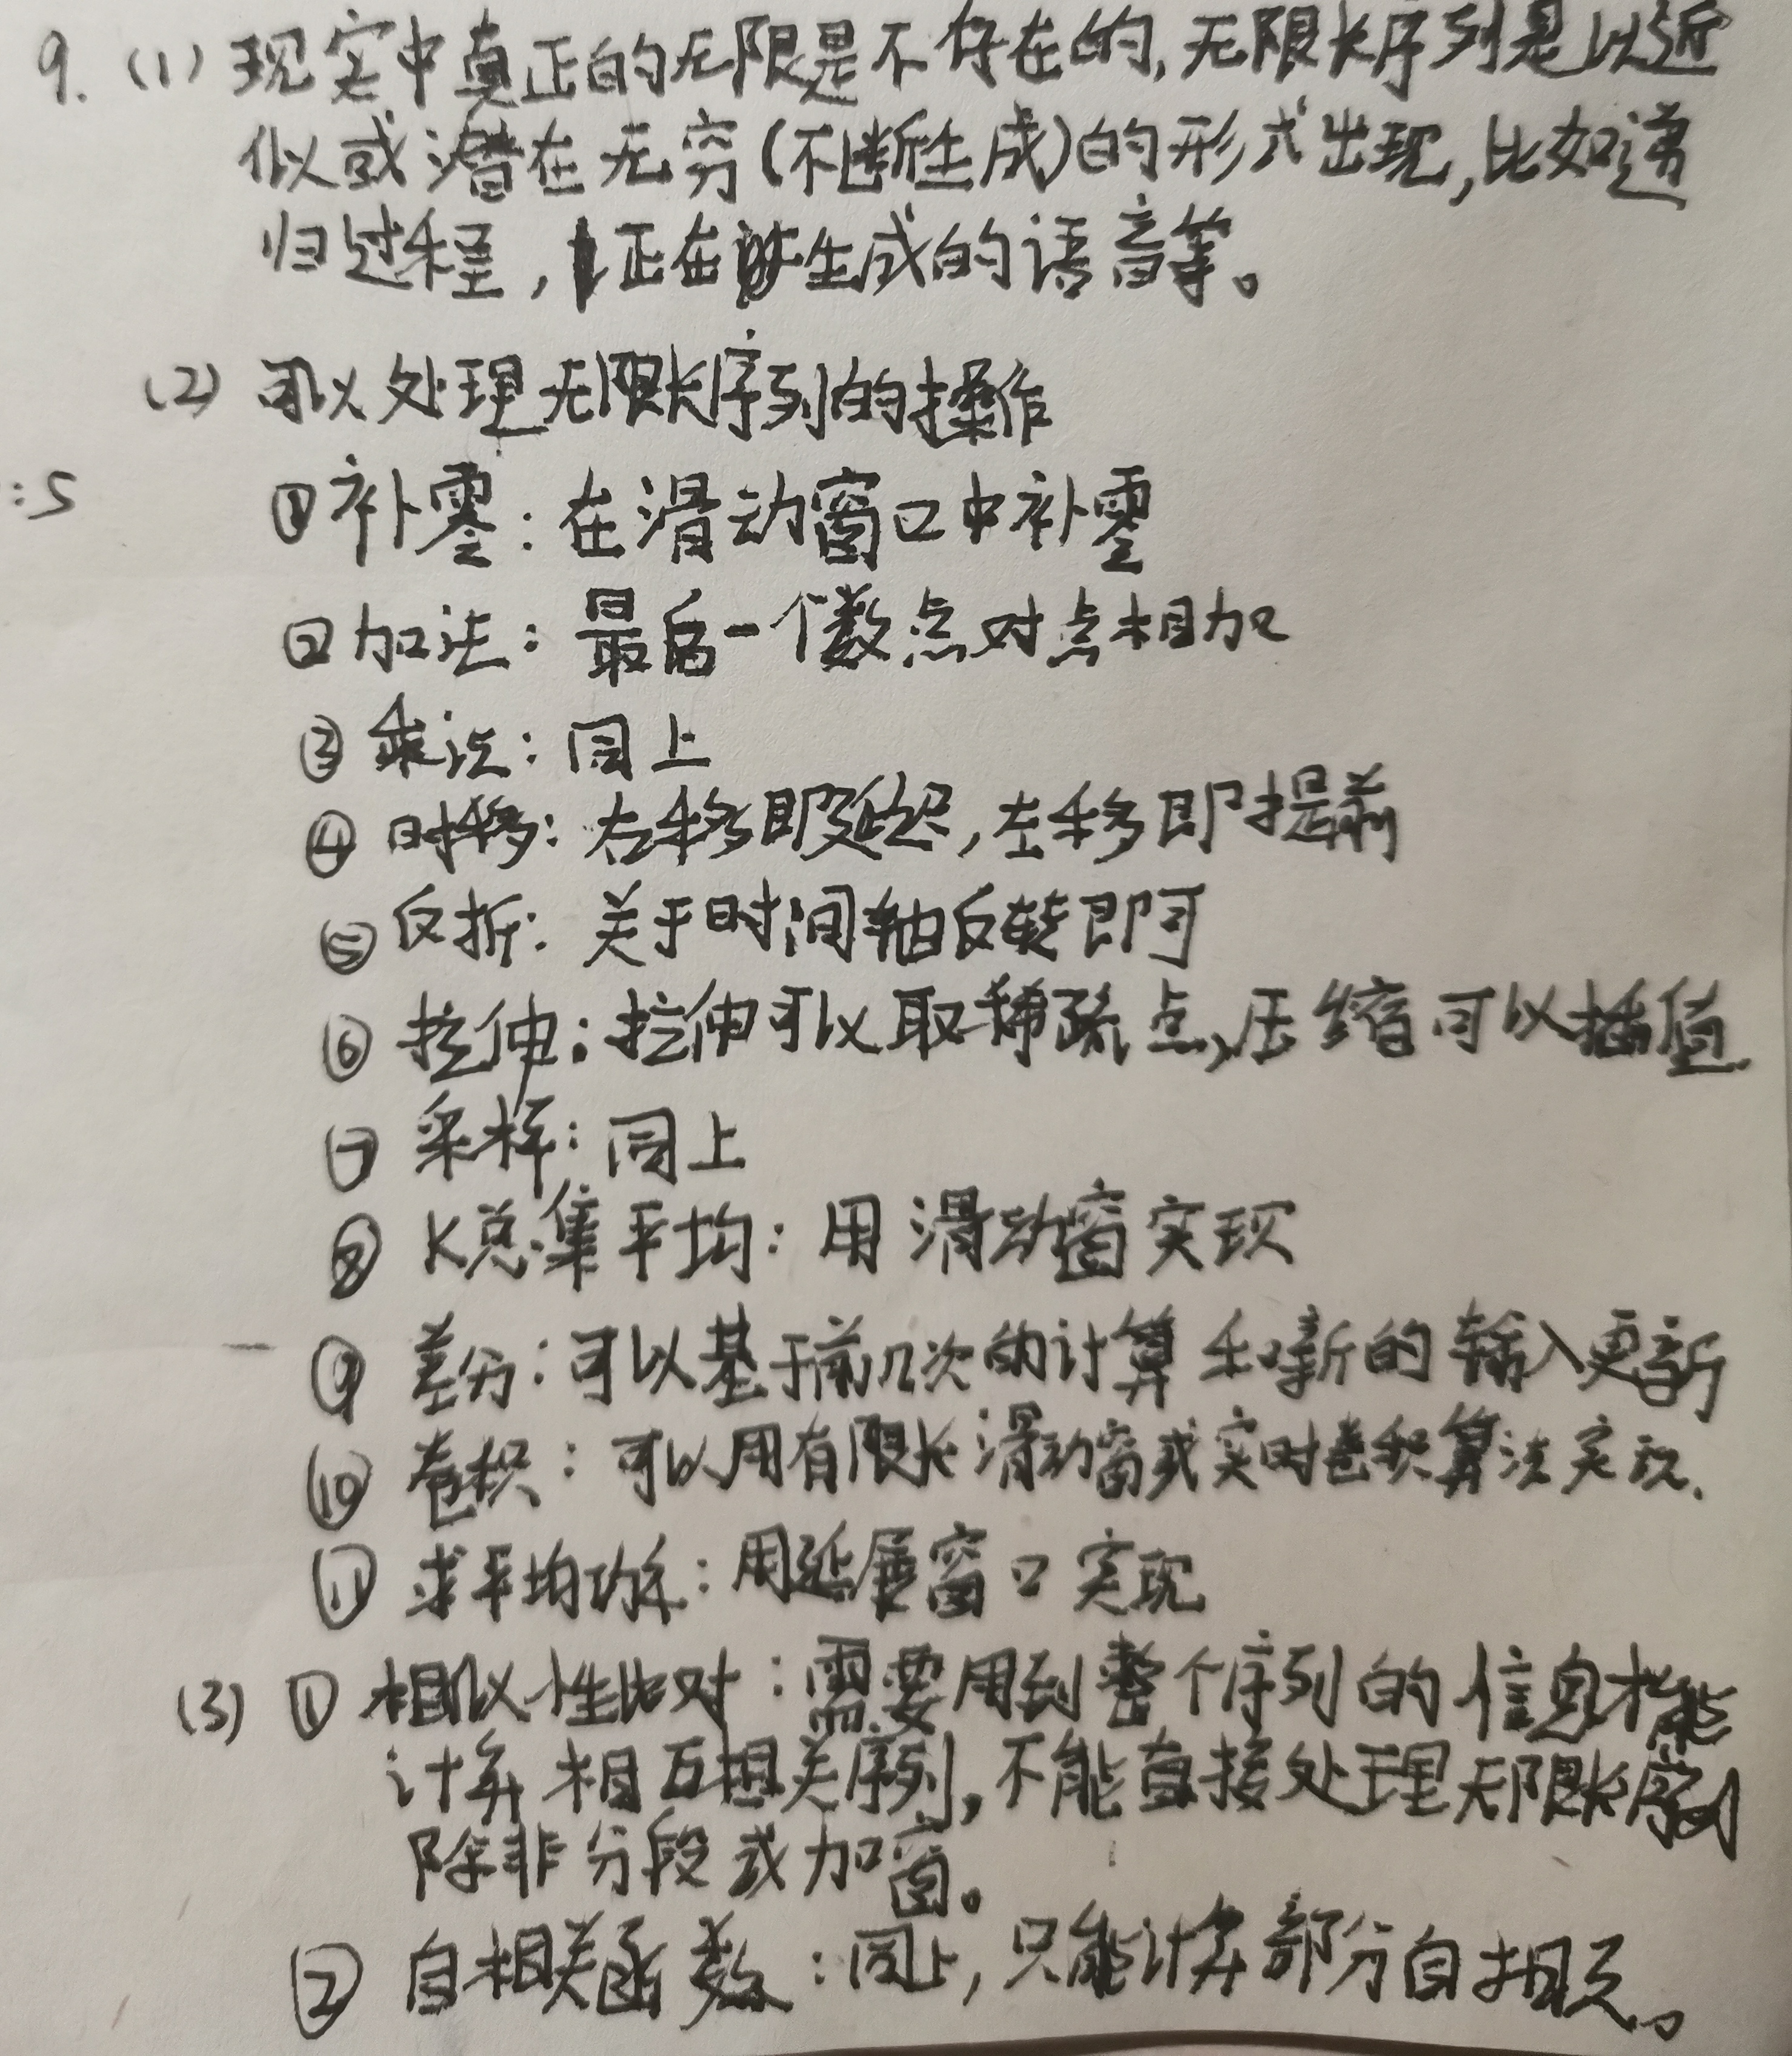 9. (1) 现实中真正的无限是不存在的,无限长序列是以近
似或潜在无穷(不断生成)的形式出现,比如递
归过程,正在生成的语音等。
(2) 可以处理无限长序列的操作
:5
①补零:在滑动窗口中补零
②加法:最后一个数点对点相加
③乘法:同上
④时移:右移即延迟,左移即提前
⑤反折:关于时间轴反转即可
⑥拉伸:拉伸可以取稀疏点,压缩可以插值.
⑦采样:同上
⑧K总集平均:用滑动窗实现
⑨差分:可以基于前几次的计算和新的输入更新
⑩卷积:可以用有限长滑动窗或实时卷积算法实现.
⑪求平均功率:用延展窗口实现
(3)①相似性比对:需要用到整个序列的信息才能
计算相互相关序列,不能直接处理无限长序列
除非分段或加窗。
②自相关函数:同上,只能计算部分自相关。